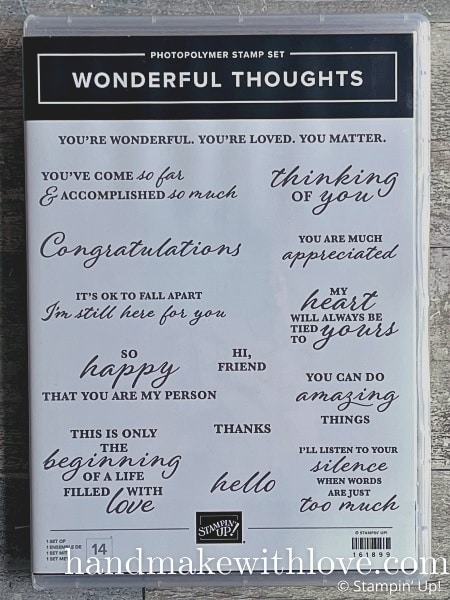 PHOTOPOLYMER STAMP SET
WONDERFUL THOUGHTS
YOU'RE WONDERFUL. YOU'RE LOVED. YOU MATTER.
YOU'VE COME so far
& ACCOMPLISHED so much
thinking
OF you
Congratulations
YOU ARE MUCH
appreciated
IT'S OK TO FALL APART
I'm still here for you
MY
heart
WILL ALWAYS BE
TIED
TO yours
SO
happy
THAT YOU ARE MY PERSON
HI,
FRIEND
YOU CAN DO
amazing
THINGS
THIS IS ONLY
THE
beginning
OF A LIFE
FILLED WITH
love
THANKS
hello
I'LL LISTEN TO YOUR
silence
WHEN WORDS
ARE JUST
too much
STAMPIN' UP!
1 SET OF
1 ENSEMBLE DE
1 SET MIT
1 SET MET
14
© STAMPIN' UP!
161899
handmakewithlove.com
© Stampin' Up!